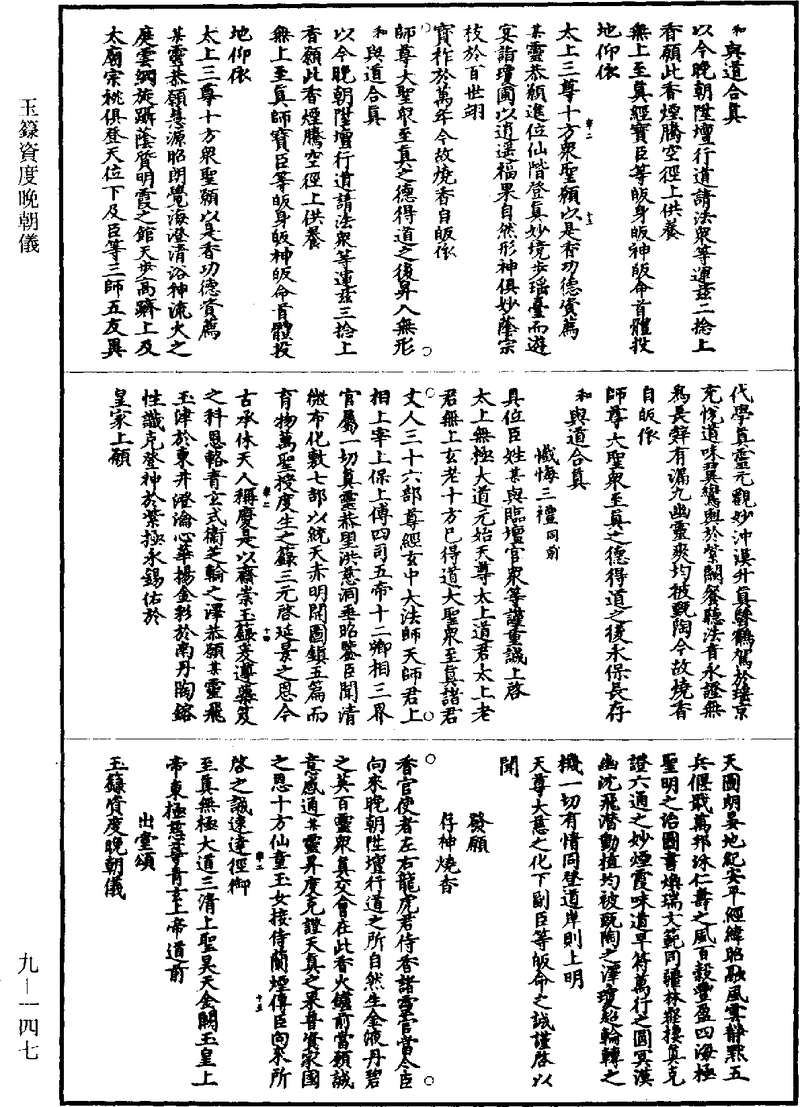 玉籙資度晚朝儀
九—一四七
和與道合真
以今晚朝陞壇行道請法衆等運茲二捻上
香願此香煙騰空徑上供養
無上至真經寶臣等皈身皈神皈命首體投
地仰依
太上三尊十方衆聖願以是香功德資薦
某靈恭願進位仙階登真妙境步瑤臺而遊
宴詣瓊圃以逍遥福果自然形神俱妙蔭宗
枝於百世翊
寶祚於萬年今故燒香自皈依
師尊大聖衆至真之德得道之後昇入無形
和與道合真
以今晚朝陞壇行道請法衆等運茲三捻上
香願此香煙騰空徑上供養
無上至真師寶臣等皈身皈神皈命首體投
地仰依
太上三尊十方衆聖願以是香功德資薦
某靈恭願慧源昭朗覺海澄清浴神流火之
庭雲綱旋躡蔭質明霞之館天步高躋上及
太廟宗祧俱登天位下及臣等三師五友異
代學真靈元觀妙沖漠升真驂鶴駕於瑤京
充悅道味翼鸞輿於紫闕餐聽法音永證無
爲長辭有漏九幽靈爽均被甄陶今故燒香
自皈依
師尊大聖衆至真之德得道之後永保長存
和與道合真
懺悔三禮同前
具位臣姓某與臨壇官衆等謹重誠上啓
太上無極大道元始天尊太上道君太上老
君無上玄老十方已得道大聖衆至真諸君
丈人三十六部尊經玄中大法師天師君上
相上宰上保上傅四司五帝十二卿相三界
官屬一切真靈恭望洪慈洞垂昭鑒臣聞清
微布化敷七部以統天赤明開圖鎮五篇而
育物萬聖授度生之籙三元啓延景之恩今
古承休天人稱慶是以齋崇玉籙爰遵藥笈
之科恩輅青玄式衛芝輪之澤恭願某靈飛
玉津於東井澄瀹心華揚金彩於南丹陶鎔
性識克登神於紫極永錫佑於
皇家上願
天圖朗晏地紀安平經緯昭融風雲靜默五
兵偃戢萬邦泳仁壽之風百穀豐盈四海極
聖明之治圖書煥瑞文範同疆林壑棲真克
證六通之妙煙霞味道早符萬行之圓冥漠
幽沈飛潛動植均被甄陶之澤瓊超輪轉之
機一切有情同登道岸則上明
天尊大慈之化下副臣等皈命之誠謹啓以
聞
發願
存神燒香
香官使者左右龍虎君侍香諸靈官當令臣
向來晚朝陞壇行道之所自然生金液丹碧
之英百靈衆真交會在此香火鑪前當願誠
意感通某靈昇度克證天真之果普資家國
之恩十方仙童玉女接侍蘭煙傳臣向來所
啓之誠速達徑御
至真無極大道三清上聖昊天金闕玉皇上
帝東極慈尊青玄上帝道前
出堂頌
玉籙資度晚朝儀